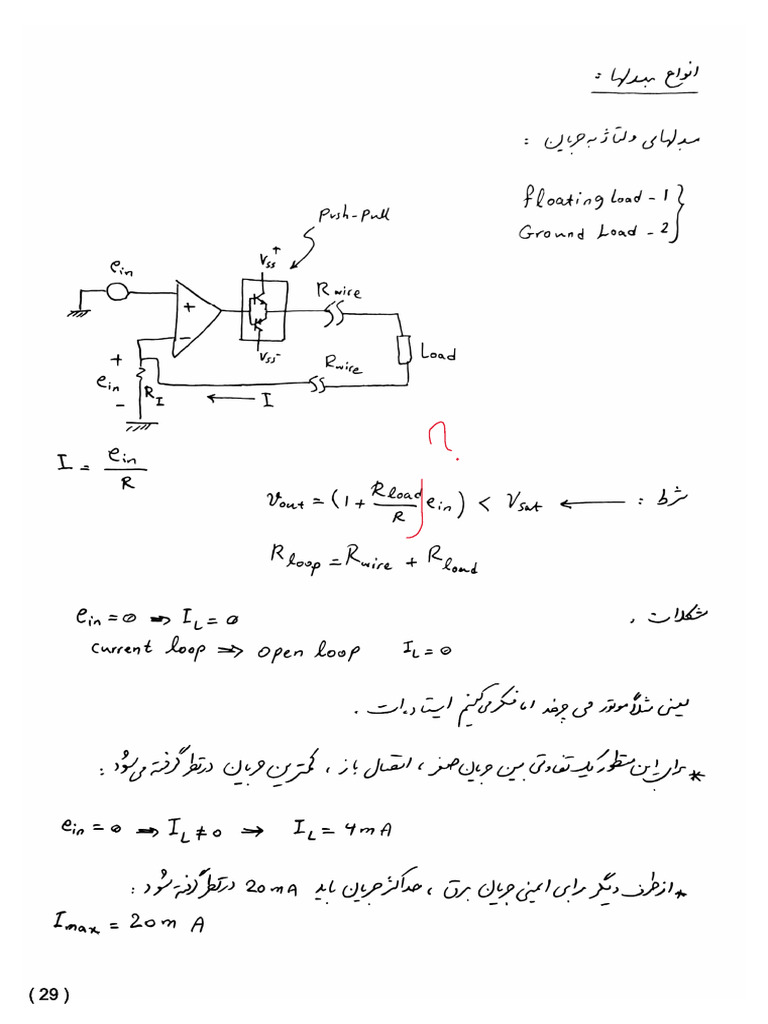 انواع مبدلها :
مبدلهای ولتاژ به جریان :
floating Load - 1
Ground Load - 2
Push-Pull
Vss+
ein
R wire
+
-
Vss-
Load
R wire
+
ein
-
RI
I
I = ein / R
?
شرط : Vout = (1 + Rload / R ein) < Vsat
Rloop = Rwire + Rload
مشکلات .
ein = 0 ⇒ IL = 0
current loop ⇒ open loop IL = 0
یعنی مثلاً موتور می چرخد اما فکر می کنیم ایستاده است .
* برای این منظور یک تفاوتی بین جریان صفر ، اتصال باز ، کمترین جریان در نظر گرفته می شود :
ein = 0 ⇒ IL ≠ 0 ⇒ IL = 4mA
* از طرف دیگر برای ایمنی جریان برق ، حداکثر جریان باید 20mA در نظر گرفته شود :
Imax = 20m A
( 29 )